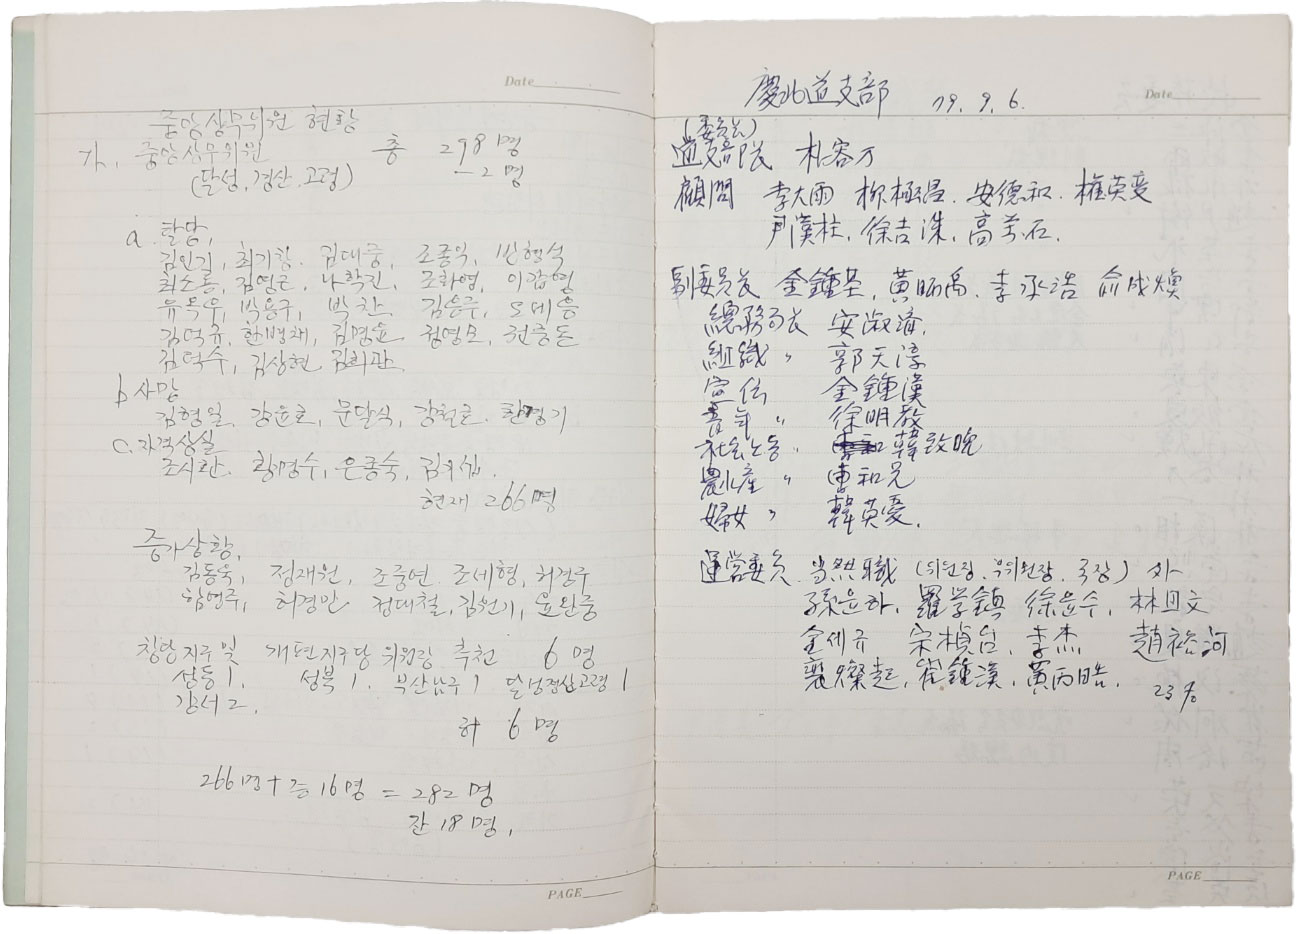 Date
중앙상무위원 현황
가. 중앙상무위원 총 298명
(달성, 경산, 고령) -2명
a. 탈당,
김인길, 최기창. 김대중, 조종익,
김영근, 나학진, 조화영, 이갑열
유옥우, 박용구, 박찬 김응주,
김덕규, 한병채, 김명윤 권중돈
김덕수, 김상현 김희관
b 사망
김형일, 강윤호, 문달식, 강철근.
c. 자격상실
조시환. 황명수, 은종숙,
현재 266명
증가상황,
김동욱, 정재원, 조중연 조세형, 허경구
함영주, 허경만 정대철, 김원기, 윤완중
창당지구 및 개편지구당 위원장 추천 6명
성동1, 성북1. 부산남구1 달성경산고령1
강서2.
계 6명
266명+증16명 = 282명
잔18명,
PAGE
慶北道支部 79. 9. 6.
Date
(委員長)
道支部長 朴容万
顧問 李大雨 柳極昌. 安德和. 權英燮
尹漢柱, 徐吉洙, 高芳石.
副委員長 金鍾基, 黃昞禹. 李承浩 俞成煥
總務局長 安淑濟,
組織 〃 郭天淳
宣伝 金鍾漢
青年 〃 徐明教
社会노동 〃 韓致晩
農水産 〃 曺和兄
婦女 〃 韓英愛.
運営委員 当然職 (위원장. 부위원장. 국장) 外
孫윤하, 羅学鎮 徐윤수, 林日文
金세규 宋楨台, 李杰 趙裕河
裵燦起, 崔鍾漢, 黃丙晧.
23名
PAGE